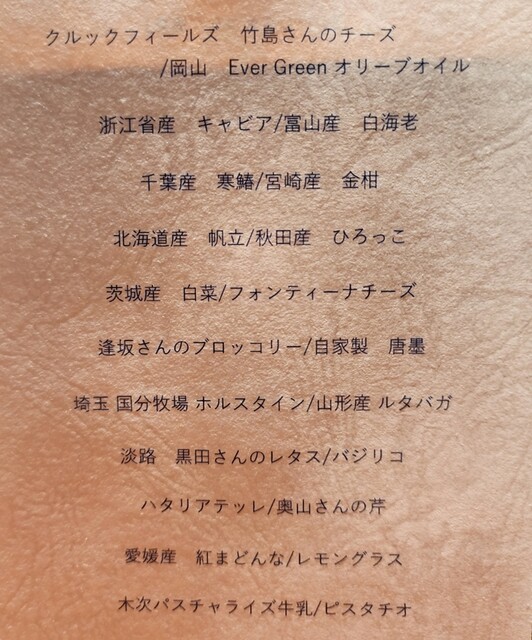 クルックフィールズ　竹島さんのチーズ
/岡山　Ever Green オリーブオイル
浙江省産　キャビア/富山産　白海老
千葉産　寒鰆/宮崎産　金柑
北海道産　帆立/秋田産　ひろっこ
茨城産　白菜/フォンティーナチーズ
逢坂さんのブロッコリー/自家製　唐墨
埼玉 国分牧場 ホルスタイン/山形産 ルタバガ
淡路　黒田さんのレタス/バジリコ
ハタリアテッレ/奥山さんの芹
愛媛産　紅まどんな/レモングラス
木次パスチャライズ牛乳/ピスタチオ